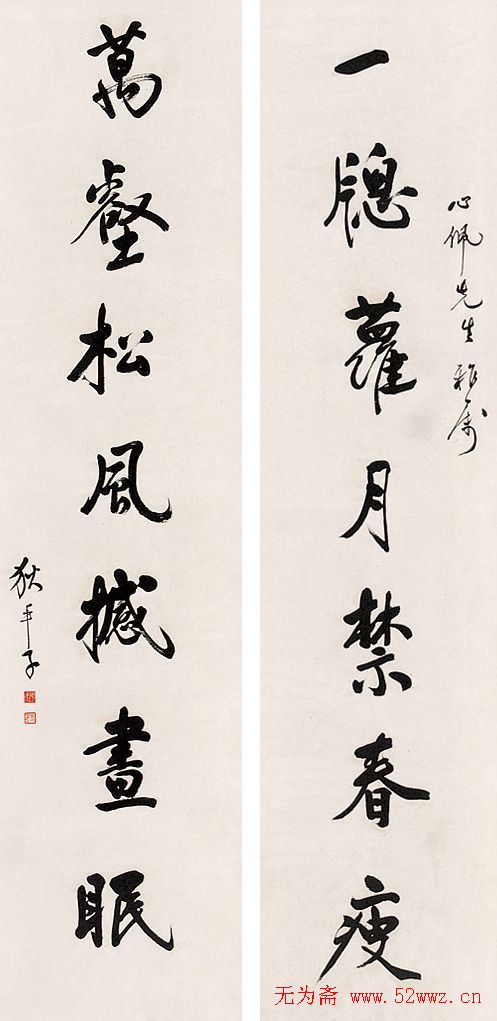 心佩先生雅属
一牕蘿月禁春瘦
萬壑松風撼晝眠
狄平子
无为斋 www.52wwz.cn